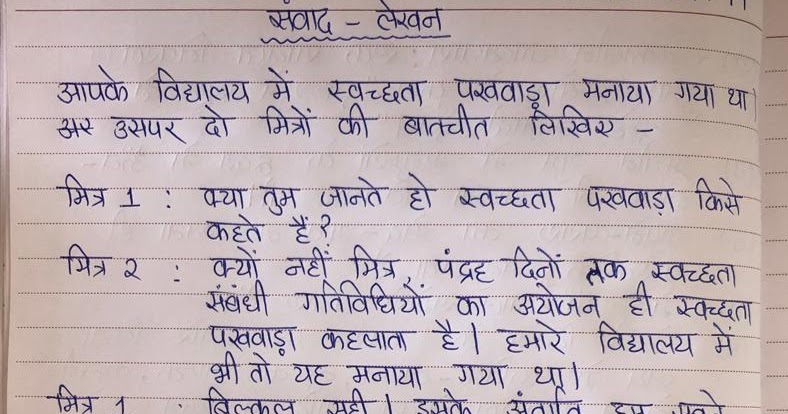 संवाद - लेखन
आपके विद्यालय में स्वच्छता पखवाड़ा मनाया गया था।
अर उसपर दो मित्रों की बातचीत लिखिए -
मित्र 1 : क्या तुम जानते हो स्वच्छता पखवाड़ा किसे
कहते हैं?
मित्र 2 : क्यों नहीं मित्र, पंद्रह दिनों तक स्वच्छता
संबंधी गतिविधियों का अयोजन ही स्वच्छता
पखवाड़ा कहलाता है। हमारे विद्यालय में
भी तो यह मनाया गया था।
मित्र 1 : बिल्कुल सही। इसके अंतर्गत हम